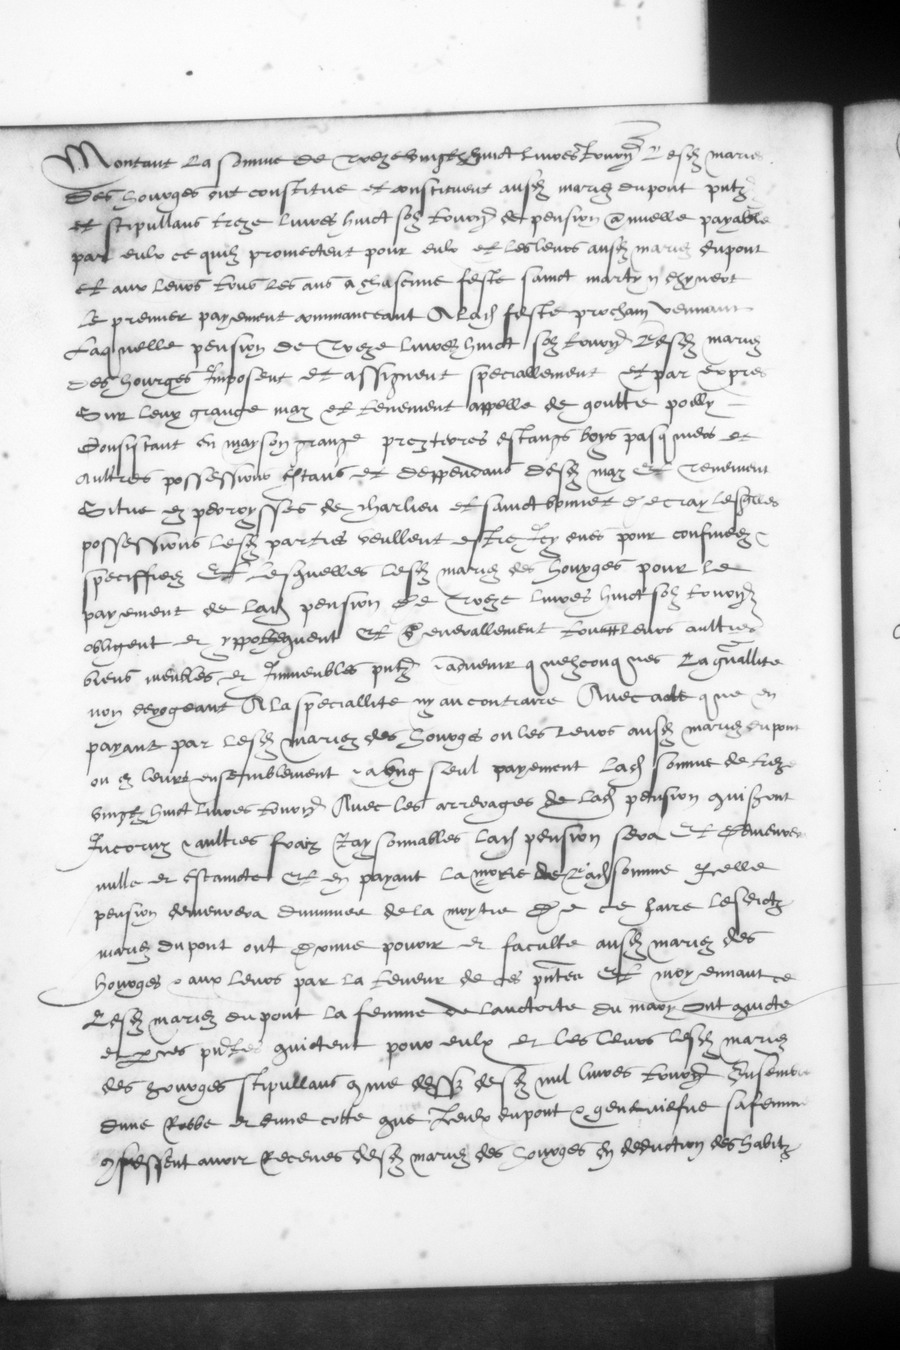 Montant la somme de treze vingtz huict livres tourn lesd mariez
des hourges ont constitue et constituent ausd mariez dupont pntz
et stipullans treze livres huict solz tourn de pension annuelle payable
par eulx ce quilz promectent pour eulx et les leurs ausd mariez dupont
et aux leurs tous les ans a chascune feste sainct martyn dhyvert
le premier payement commanceant A lad feste prochain venant
Laquelle pension de treze livres huict solz tourn lesd mariez
des hourges Imposent et assignent speciallement et par expres
Sur leur grange maz et tenement appelle de goutte polly
Consistant en mayson grange prez terres estangs boys pasquiers et
aultres possessions estans et deppendans desd maz et tenement
Situe es parroysses de charlieu et sainct bonnet de cray lesquelles
possessions lesd parties veullent estre Icy eues pour confinees
speciffiees Et lesquelles lesd mariez des hourges pour le
payement de lad pension de treze livres huict solz tourn
obligent et yppothequent Et generallement tous leurs aultres
biens meubles et Immeubles pntz advenir quelzconques La gnallite
non derogeant A la speciallite ny au contraire Avec acte que en
payant par lesd mariez des hourges ou les leurs ausd mariez dupont
ou es leurs ensemblement a ung seul payement lad somme de treze
vingtz huict livres tourn Avec les arreyrages de lad pension qui seront
Incoruz aultres fraiz Raysonnables lad pension sera Et demeurera
nulle et estaincte Et en payant la moytie de lad somme Icelle
pension demeurera diminuee de la moytie De ce faire lesdictz
mariez dupont ont donne pouvoir et faculte ausd mariez des
hourges aux leurs par la teneur de ces pntes Et moyennant ce
Lesd mariez dupont la femme de lauctorite du mary ont quicte
et par ces pntes quictent pour eulx et les leurs lesd mariez
des hourges stipullans come dessus desd mil livres tourn Ensemble
dune Robbe et dune cotte que Iceulx dupont geneviefve sa femme
confessent avoir Receues desd mariez des hourges en deduction des habitz